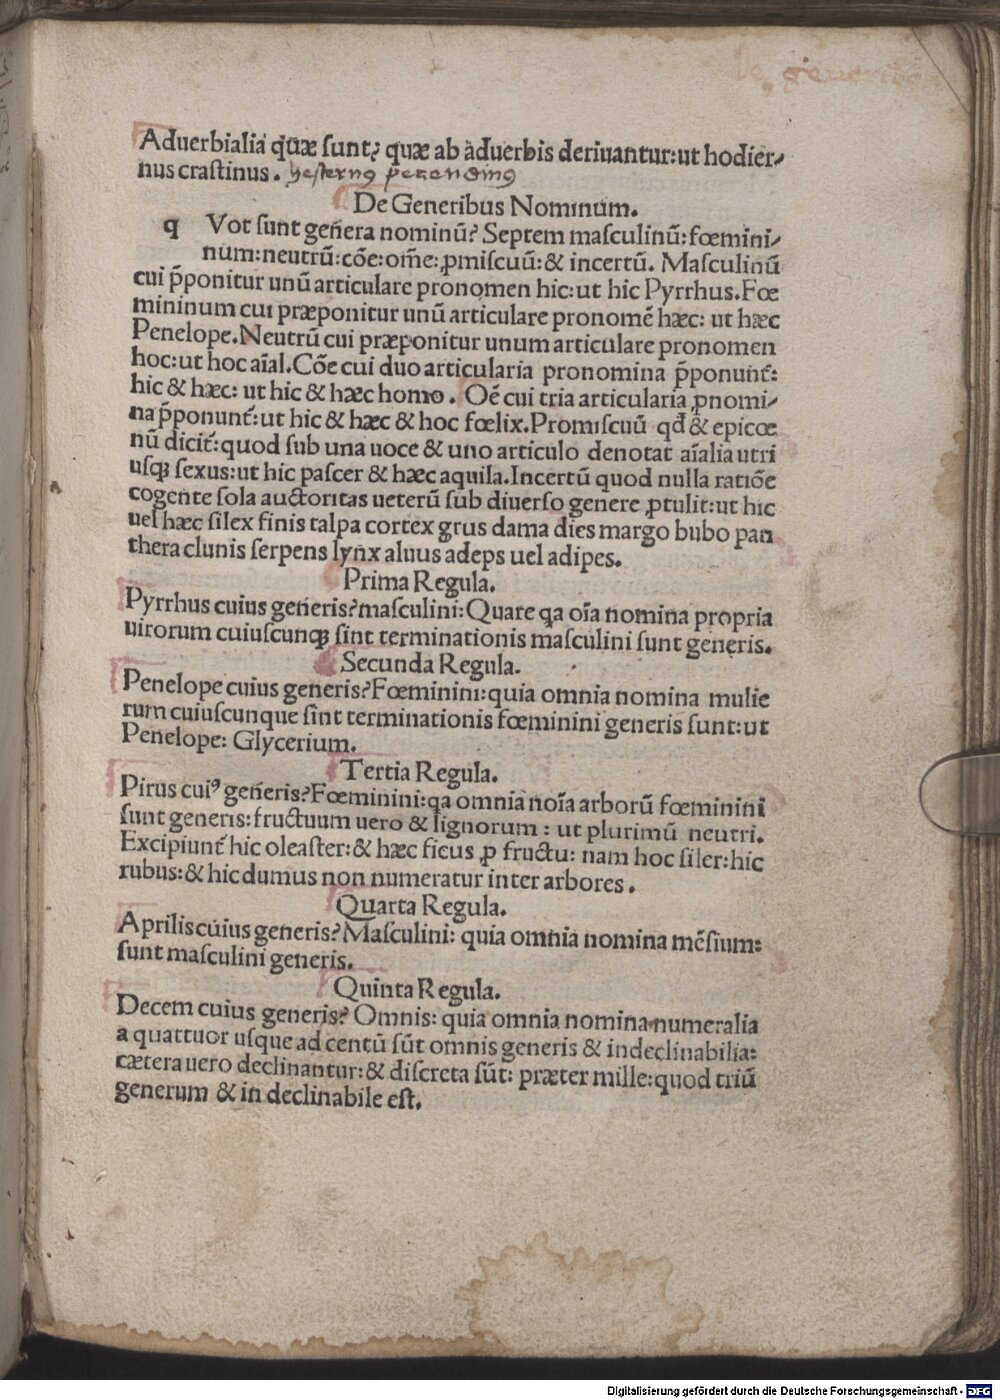 de generibus
Aduerbialia q̄uæ sunt? quæ ab aduerbis deriuantur:ut hodier⸗
nus crastinus. hesternꝰ perendinꝰ
De Generibus Nominum.
q Vot sunt genera nominū? Septem masculinū:fœmini⸗
num:neutrū:cōe:om̄e:ꝓmiscuū:& incertū. Masculinū
cui p̄ponitur unū articulare pronomen hic:ut hic Pyrrhus.Fœ
mininum cui præponitur unū articulare pronomē hæc: ut hæc
Penelope.Neutrū cui præponitur unum articulare pronomen
hoc:ut hoc aīal.Cōe cui duo articularia pronomina p̄ponunt̄:
hic & hæc: ut hic & hæc homo. Oē cui tria articularia ꝓnomi⸗
na p̄ponunt̄:ut hic & hæc & hoc fœlix.Promiscuū qđ & epicœ
nū dicit̄:quod sub una uoce & uno articulo denotat aīalia utri
usqꝫ sexus:ut hic passer & hæc aquila.Incertū quod nulla ratiōe
cogente sola auctoritas ueterū sub diuerso genere ꝓtulit:ut hic
uel hæc silex finis talpa cortex grus dama dies margo bubo pan
thera clunis serpens lynx aluus adeps uel adipes.
Prima Regula.
Pyrrhus cuius generis?masculini:Quare qa oīa nomina propria
uirorum cuiuscunqꝫ sint terminationis masculini sunt generis.
Secunda Regula.
Penelope cuius generis?Fœminini:quia omnia nomina mulie
rum cuiuscunque sint terminationis fœminini generis sunt:ut
Penelope: Glycerium.
Tertia Regula.
Pirus cuiꝰ generis?Fœminini:qa omnia noīa arborū fœminini
sunt generis:fructuum uero & lignorum: ut plurimū neutri.
Excipiunt̄ hic oleaster:& hæc ficus ꝓ fructu: nam hoc siler:hic
rubus:& hic dumus non numeratur inter arbores.
Quarta Regula.
Aprilis cuius generis? Masculini: quia omnia nomina mēsium:
sunt masculini generis.
Quinta Regula.
Decem cuius generis? Omnis: quia omnia nomina numeralia
a quattuor usque ad centū sūt omnis generis & indeclinabilia:
cætera uero declinantur:& discreta sūt: præter mille:quod triū
generum & in declinabile est.
Digitalisierung gefördert durch die Deutsche Forschungsgemeinschaft - DFG